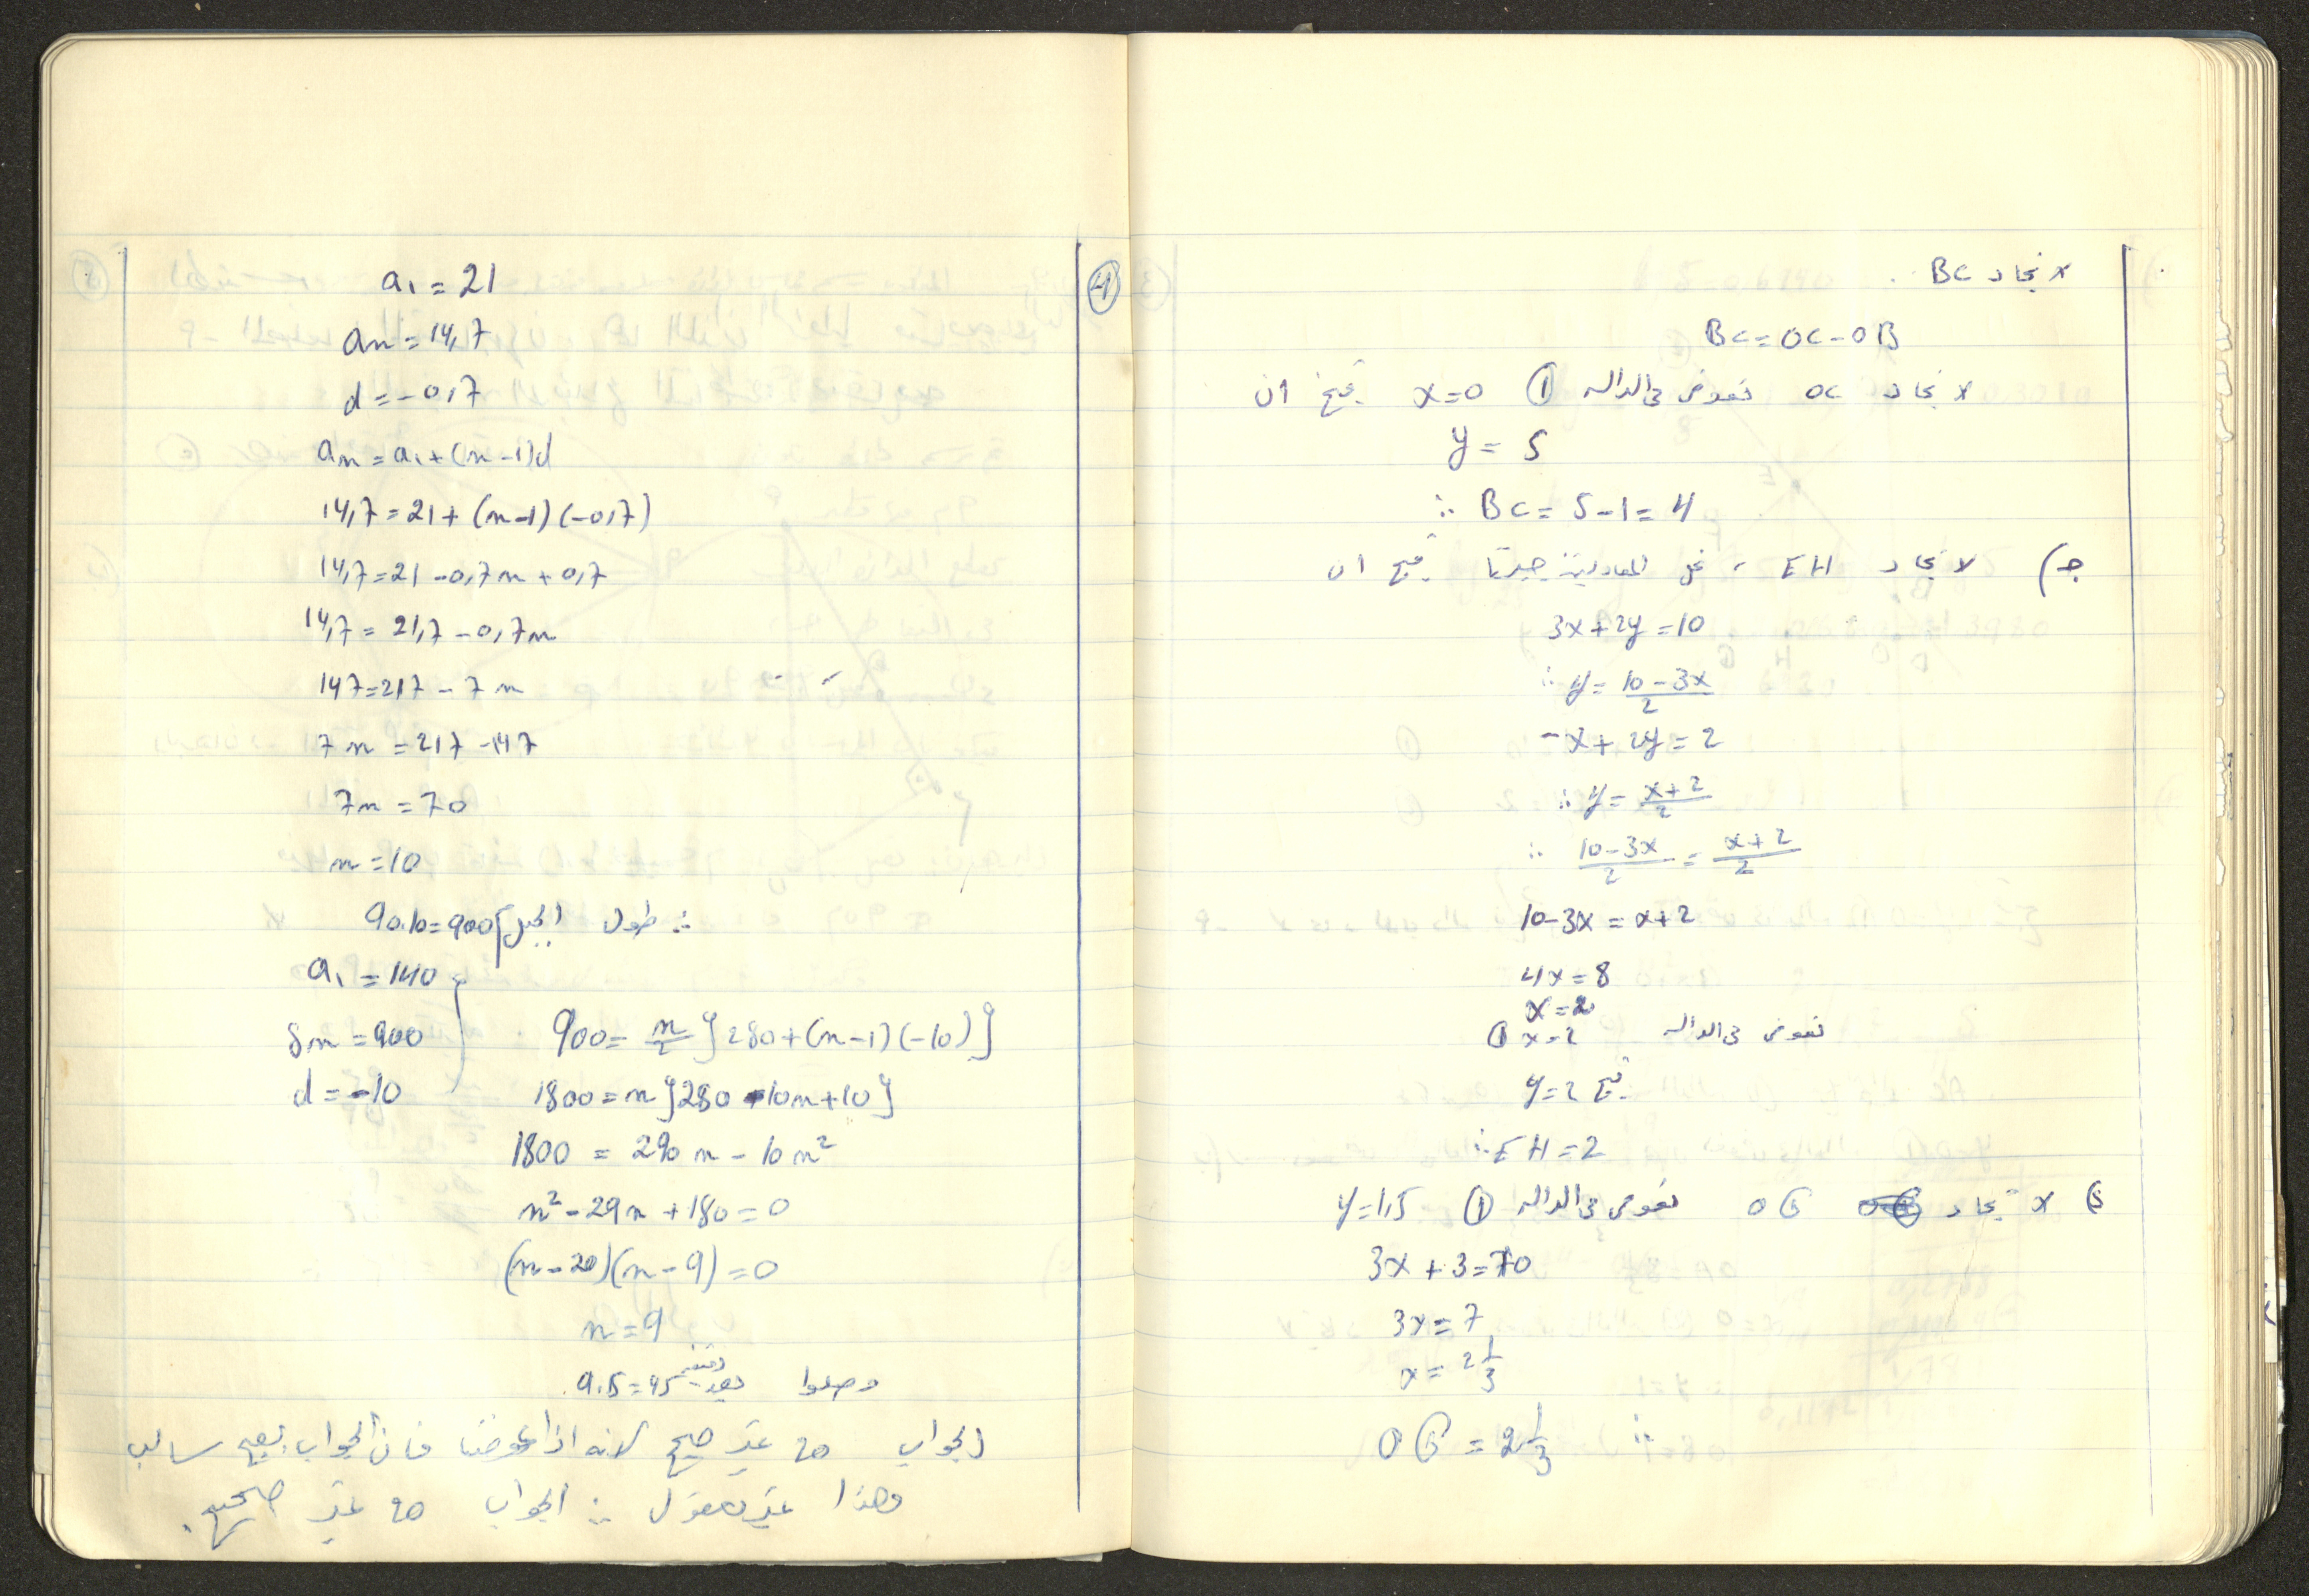 لايجاد BC
BC = OC - OB
لايجاد OC نعوض في الداله ① x=0 ينتج ان
y = 5
∴ BC = 5-1 = 4
جـ) لايجاد EH ، نحل المعادلتين جبريًا ينتج ان
3x+2y=10
∴ y = (10-3x)/2
-x+2y=2
∴ y = (x+2)/2
∴ (10-3x)/2 = (x+2)/2
10-3x = x+2
4x = 8
x=2
نعوض في الداله ① x=2
ينتج y=2
∴ EH = 2
د) لايجاد OG نعوض في الداله ① y=1,5
3x+3=10
3x = 7
x = 2 1/3
∴ OG = 2 1/3
④
a₁ = 21
an = 14,7
d = -0,7
an = a₁+(n-1)d
14,7 = 21+(n-1)(-0,7)
14,7 = 21-0,7n+0,7
14,7 = 21,7-0,7n
147 = 217-7n
7n = 217-147
7n = 70
n = 10
∴ طول الجبل 90.10=900
a₁ = 140
Sn = 900
d = -10
900 = n/2 {280+(n-1)(-10)}
1800 = n{280-10n+10}
1800 = 290n - 10n²
n²-29n+180=0
(n-20)(n-9)=0
n = 9
وصلوا بعد 9.5=45 دقيقه
الجواب 20 غير صحيح لانه اذا عوضنا فان الجواب يصبح سالب
وهذا غير معقول ∴ الجواب 20 غير صحيح.